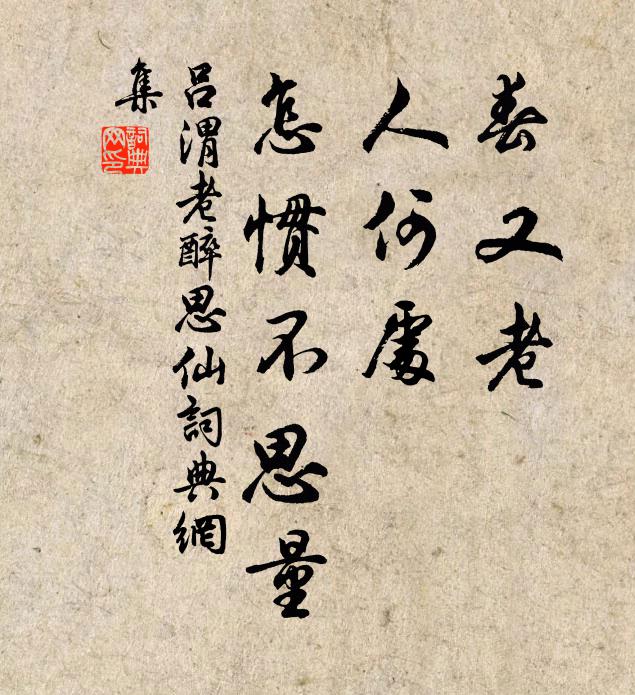 春又老
人何處
怎慣不思量
呂渭老醉思仙詞典網
集
詞典
网印